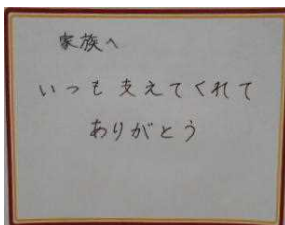 家族へ
いつも支えてくれて
ありがとう